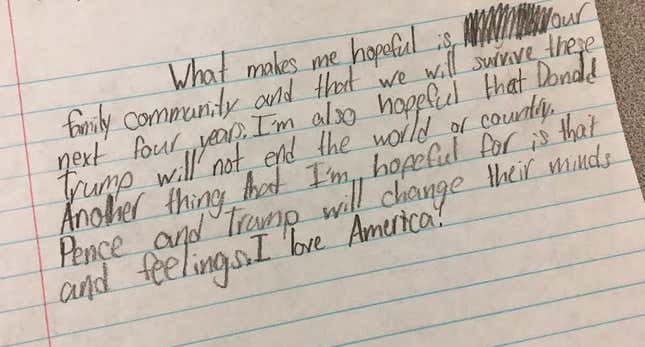 What makes me hopeful is our
family community and that we will survive these
next four years. I'm also hopeful that Donald
Trump will not end the world or country.
Another thing that I'm hopeful for is that
Pence and Trump will change their minds
and feelings. I love America!